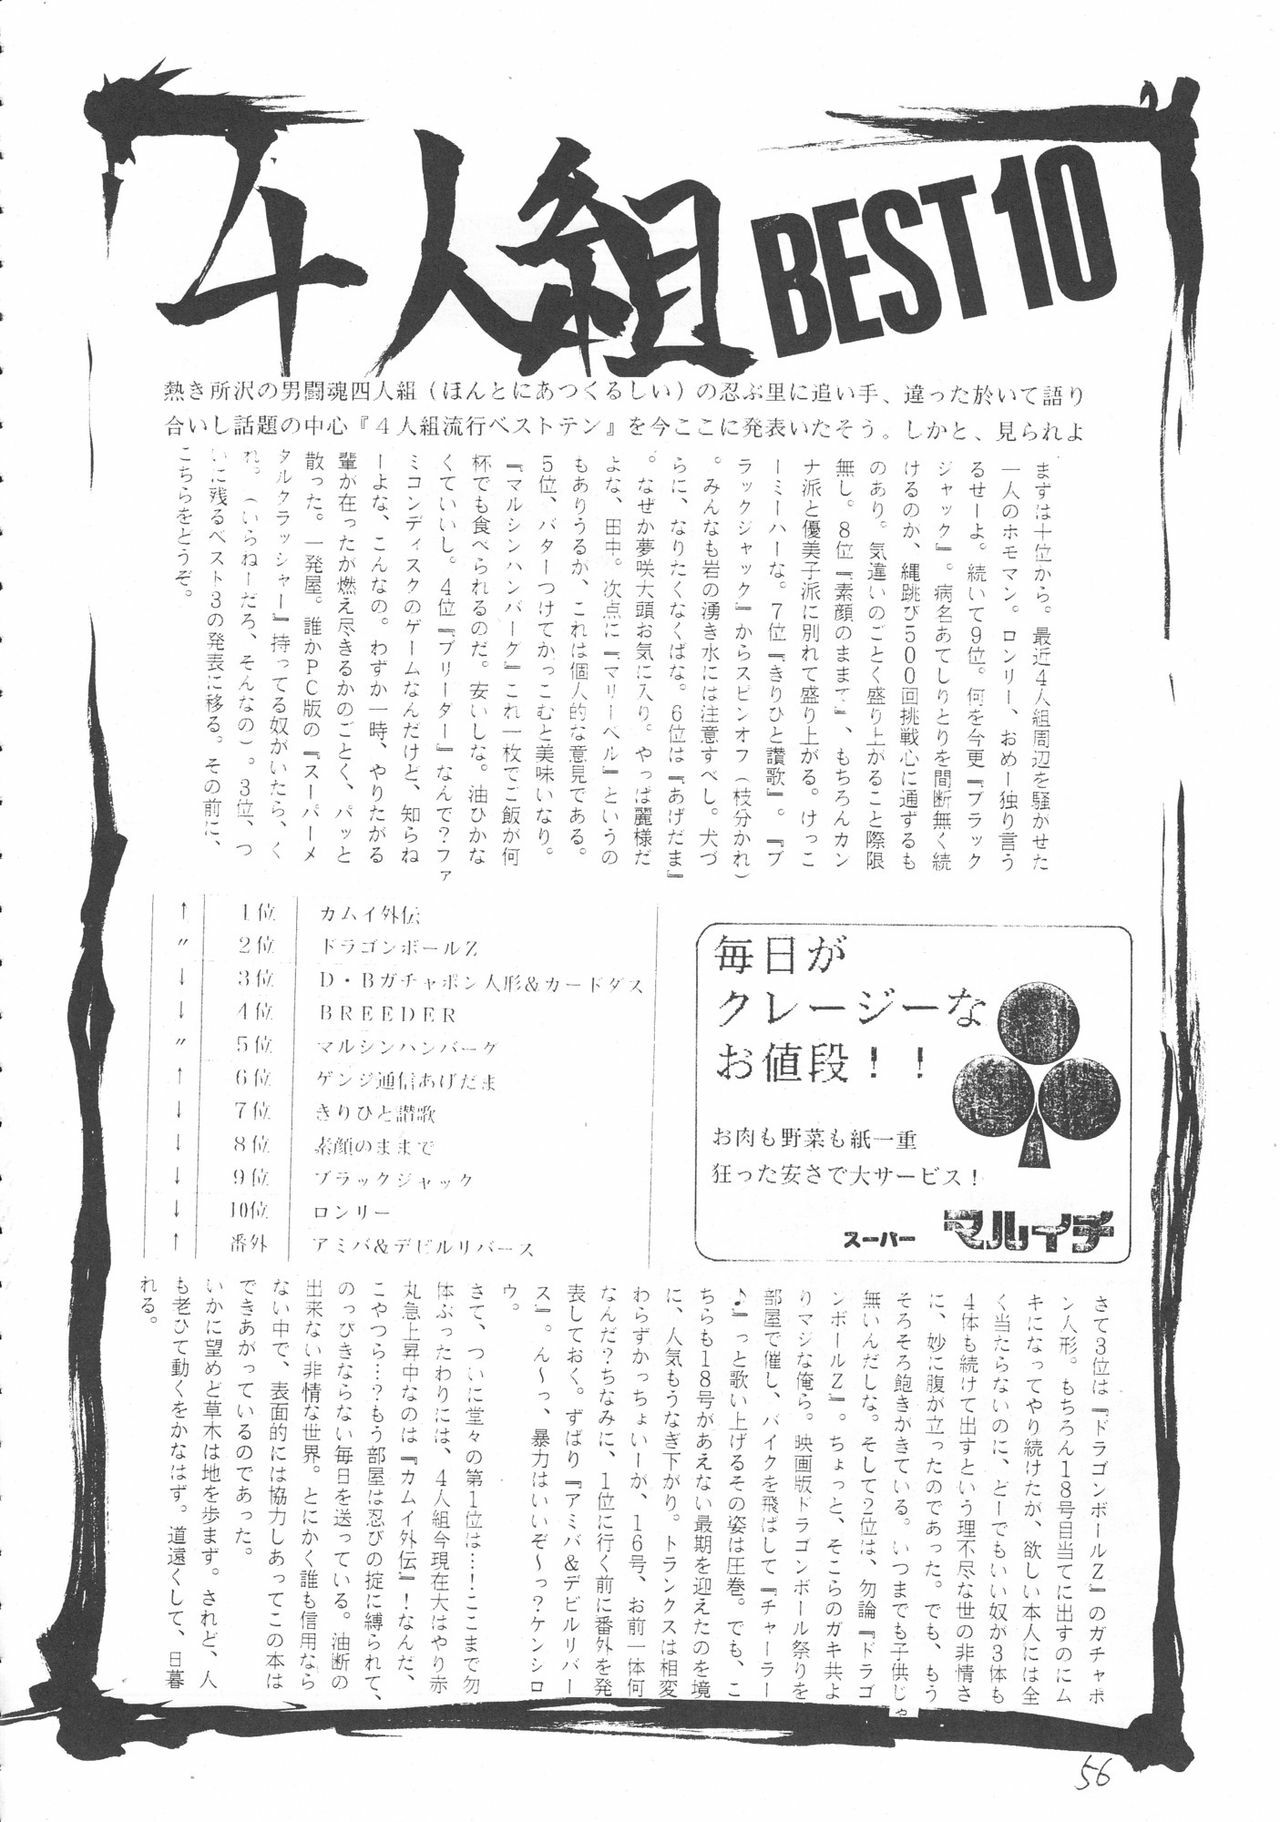 4人組 BEST10
熱き所沢の男闘魂四人組（ほんとにあつくるしい）の忍ぶ里に追い手、違った於いて語り
合いし話題の中心『４人組流行ベストテン』を今ここに発表いたそう。しかと、見られよ
まずは十位から。最近４人組周辺を騒がせた
一人のホモマン。ロンリー、おめー独り言う
るせーよ。続いて９位。何を今更『ブラック
ジャック』。病名あてしりとりを間断無く続
けるのか、縄跳び５００回挑戦心に通ずるも
のあり。気違いのごとく盛り上がること際限
無し。８位『素顔のままで』、もちろんカン
ナ派と優美子派に別れて盛り上がる。けっこ
ーミーハーな。７位『きりひと讃歌』。『ブ
ラックジャック』からスピンオフ（枝分かれ）
。みんなも岩の湧き水には注意すべし。犬づ
らに、なりたくなくばな。６位は『あげだま』
。なぜか夢咲大頭お気に入り。やっぱ麗様だ
よな、田中。次点に『マリーベル』というの
もありうるか、これは個人的な意見である。
５位、バターつけてかっこむと美味いなり。
『マルシンハンバーグ』これ一枚でご飯が何
杯でも食べられるのだ。安いしな。油ひかな
くていいし。４位『ブリーダー』なんで？ファ
ミコンディスクのゲームなんだけど、知らね
ーよな、こんなの。わずか一時、やりたがる
輩が在ったが燃え尽きるかのごとく、パッと
散った。一発屋。誰かＰＣ版の『スーパーメ
タルクラッシャー』持ってる奴がいたら、く
れ。（いらねーだろ、そんなの）。３位、つ
いに残るベスト３の発表に移る。その前に、
こちらをどうぞ。
↑ １位 カムイ外伝
〃 ２位 ドラゴンボールＺ
↓ ３位 Ｄ・Ｂガチャポン人形＆カードダス
↓ ４位 ＢＲＥＥＤＥＲ
〃 ５位 マルシンハンバーグ
↑ ６位 ゲンジ通信あげだま
↓ ７位 きりひと讃歌
↓ ８位 素顔のままで
↓ ９位 ブラックジャック
↓ 10位 ロンリー
↑ 番外 アミバ＆デビルリバース
毎日が
クレージーな
お値段！！
お肉も野菜も紙一重
狂った安さで大サービス！
スーパー マルイチ
さて３位は『ドラゴンボールＺ』のガチャポ
ン人形。もちろん１８号目当てに出すのにム
キになってやり続けたが、欲しい本人には全
く当たらないのに、どーでもいい奴が３体も
４体も続けて出すという理不尽な世の非情さ
に、妙に腹が立ったのであった。でも、もう
そろそろ飽きかきている。いつまでも子供じゃ
無いんだしな。そして２位は、勿論『ドラゴ
ンボールＺ』。ちょっと、そこらのガキ共よ
りマジな俺ら。映画版ドラゴンボール祭りを
部屋で催し、バイクを飛ばして『チャーラー
♪』っと歌い上げるその姿は圧巻。でも、こ
ちらも１８号があえない最期を迎えたのを境
に、人気もうなぎ下がり。トランクスは相変
わらずかっちょいーが、１６号、お前一体何
なんだ？ちなみに、１位に行く前に番外を発
表しておく。ずばり『アミバ＆デビルリバー
ス』。ん〜っ、暴力はいいぞ〜っ？ケンシロ
ウ。
さて、ついに堂々の第１位は…！ここまで勿
体ぶったわりには、４人組今現在大はやり赤
丸急上昇中なのは『カムイ外伝』！なんだ、
こやつら…？もう部屋は忍びの掟に縛られて、
のっぴきならない毎日を送っている。油断の
出来ない非情な世界。とにかく誰も信用なら
ない中で、表面的には協力しあってこの本は
できあがっているのであった。
いかに望めど草木は地を歩まず。されど、人
も老ひて動くをかなはず。道遠くして、日暮
れる。
56